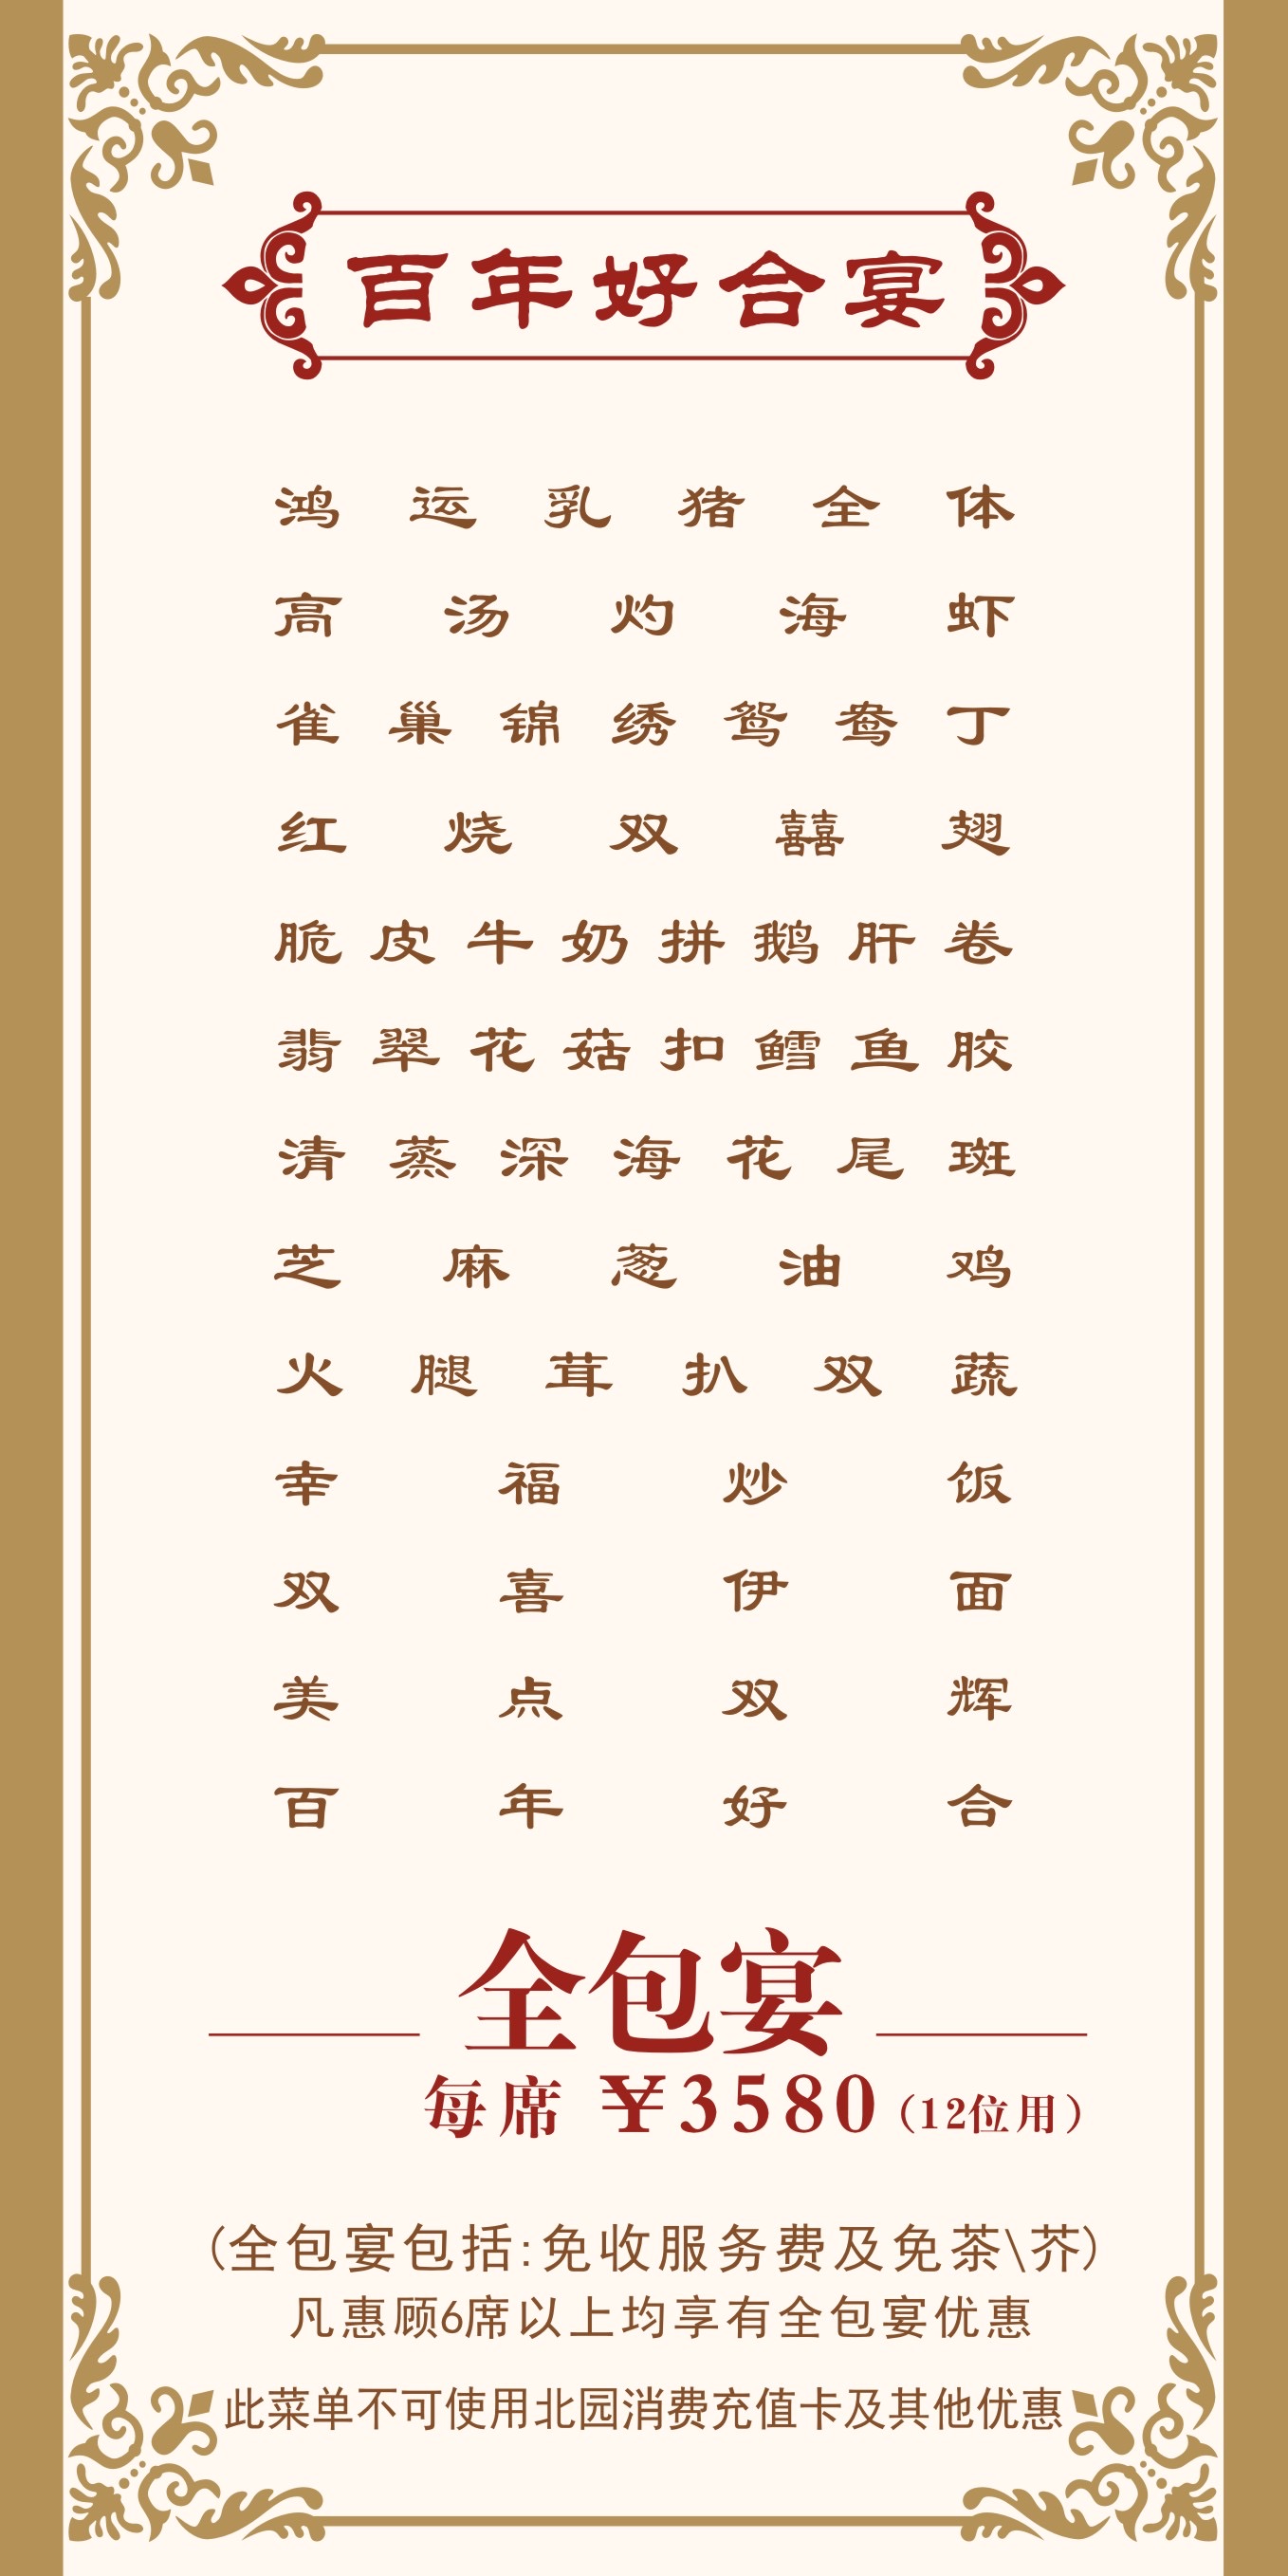 百年好合宴
鸿运乳猪全体
高汤灼海虾
雀巢锦绣鸳鸯丁
红烧双囍翅
脆皮牛奶拼鹅肝卷
翡翠花菇扣鳕鱼胶
清蒸深海花尾斑
芝麻葱油鸡
火腿茸扒双蔬
幸福炒饭
双喜伊面
美点双辉
百年好合
全包宴
每席 ￥3580(12位用)
(全包宴包括:免收服务费及免茶\芥)
凡惠顾6席以上均享有全包宴优惠
此菜单不可使用北园消费充值卡及其他优惠